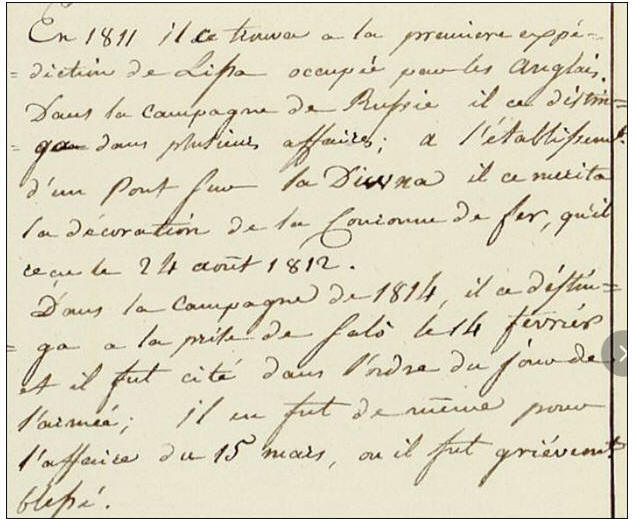 En 1811 il ce trouva a la premiere expé-
= diction de Lissa occupée par les Anglais.
Dans la campagne de Russie il ce distin=
= ga dans plusieurs affaires; a l'établissemt.
d'un Pont sur la Diwna il ce merita
la décoration de la Couronne de fer, qu'il
recu le 24 août 1812.
Dans la campagne de 1814, il ce déstin=
= ga a la prise de Salò le 14 février
et il fut cité dans l'ordre du jour de
l'armeé; il en fut de même pour
l'affaire du 15 mars, ou il fut griévemt
blessé.